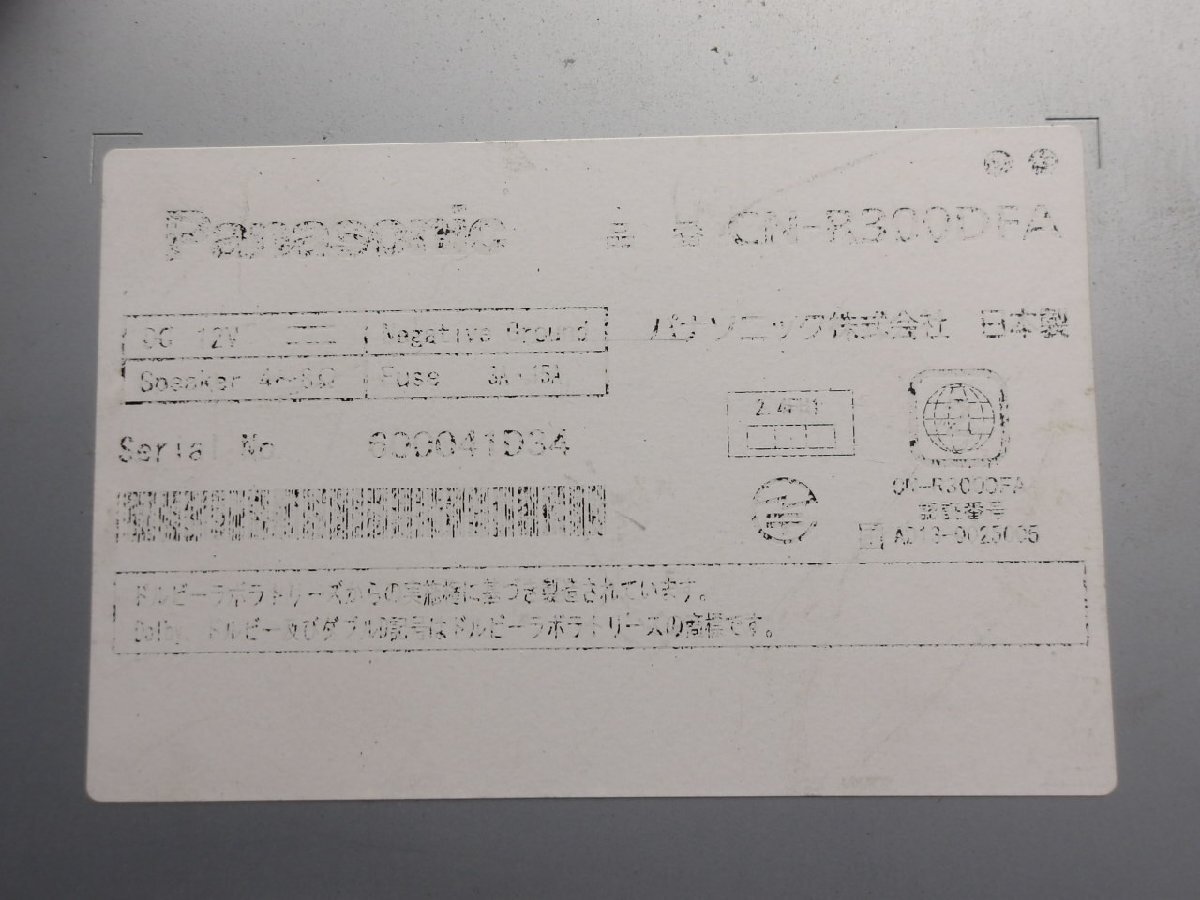 Panasonic 品番 CN-R300DFA
DC 12V Negative Ground
Speaker 4~8Ω Fuse 3A・15A
パナソニック株式会社 日本製
2.4FH1
CN-R300DFA
認証番号
ドルビーラボラトリーズからの実施権に基づき製造されています。
Dolby、ドルビー及びダブルD記号はドルビーラボラトリーズの商標です。
Serial No